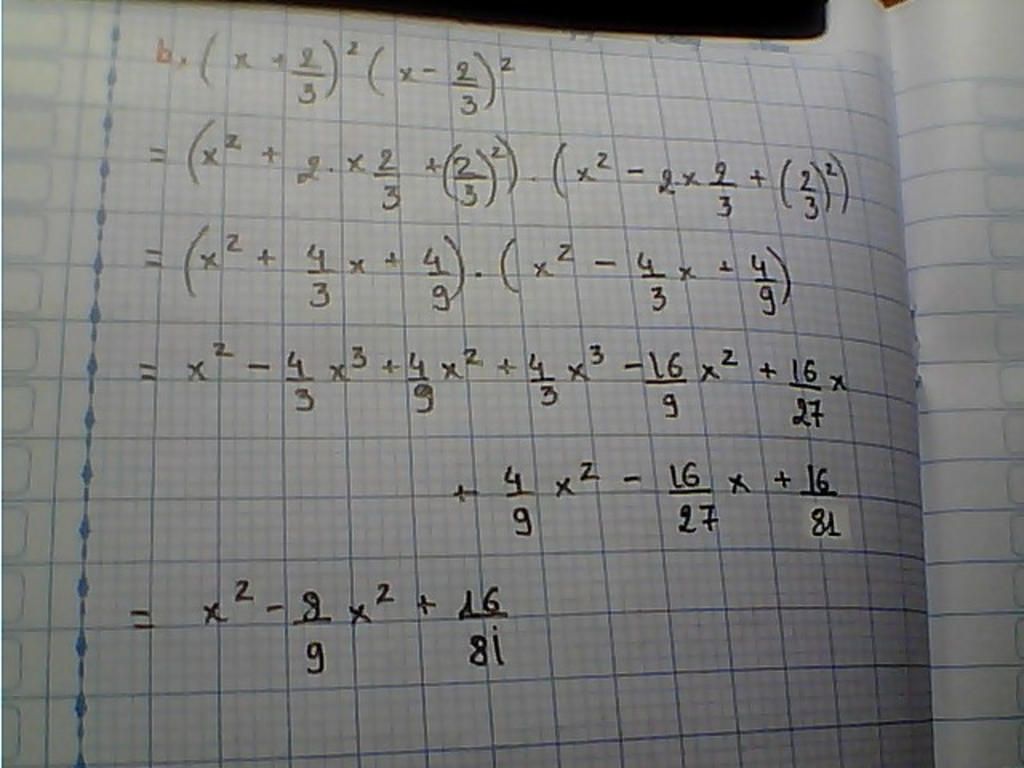 b. (x + 2/3)² (x - 2/3)²
= (x² + 2·x 2/3 + (2/3)²) · (x² - 2x 2/3 + (2/3)²)
= (x² + 4/3 x + 4/9) · (x² - 4/3 x + 4/9)
= x² - 4/3 x³ + 4/9 x² + 4/3 x³ - 16/9 x² + 16/27 x
+ 4/9 x² - 16/27 x + 16/81
= x² - 8/9 x² + 16/81